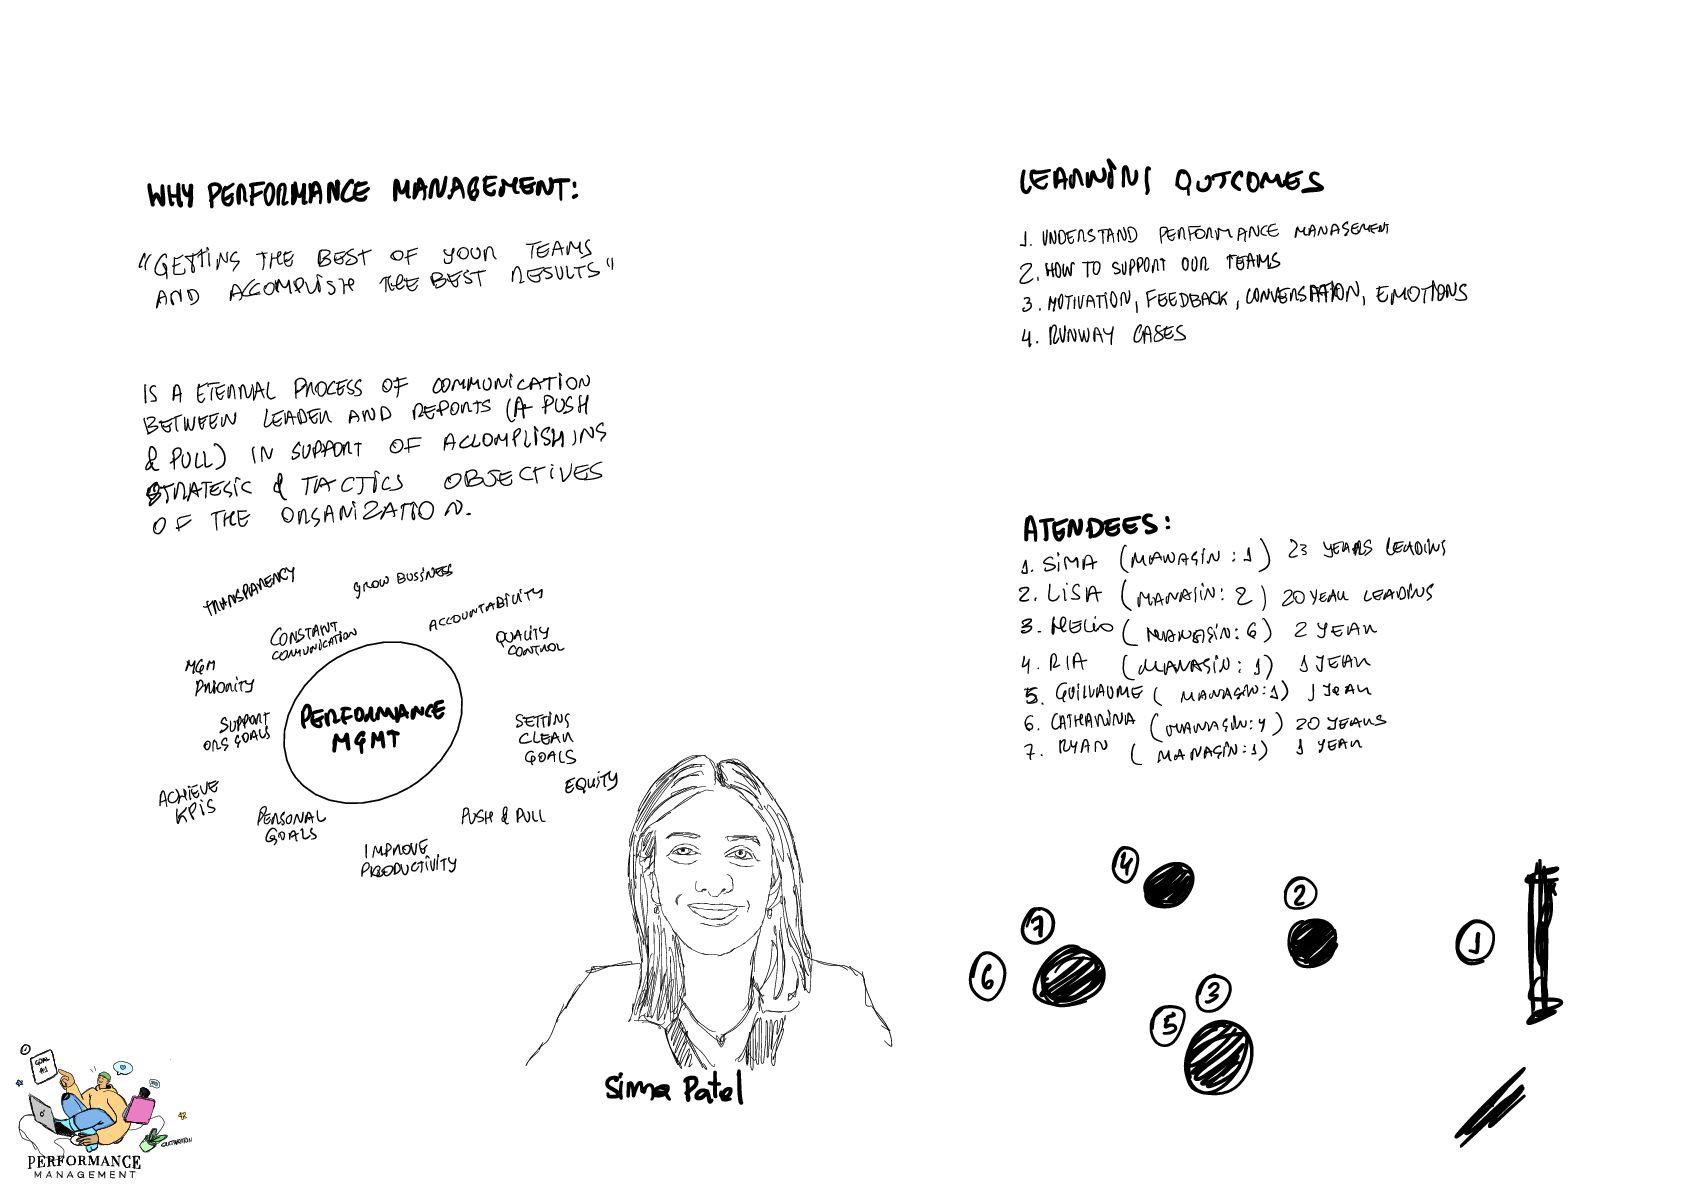 WHY PERFORMANCE MANAGEMENT:
"GETTING THE BEST OF YOUR TEAMS
AND ACOMPLISH THE BEST RESULTS"
IS A ETERNAL PROCESS OF COMMUNICATION
BETWEEN LEADER AND REPORTS (A PUSH
& PULL) IN SUPPORT OF ACCOMPLISHING
STRATEGIC & TACTICS OBJECTIVES
OF THE ORGANIZATION.
TRANSPARENCY
GROW BUSINESS
ACCOUNTABILITY
CONSTANT
COMMUNICATION
QUALITY
CONTROL
MGM
PRIORITY
SUPPORT
ORG GOALS
PERFORMANCE
MGMT
SETTING
CLEAR
GOALS
EQUITY
ACHIEVE
KPIS
PERSONAL
GOALS
PUSH & PULL
IMPROVE
PRODUCTIVITY
Sima Patel
GOAL
#1
PERFORMANCE
MANAGEMENT
LEARNING OUTCOMES
1. UNDERSTAND PERFORMANCE MANAGEMENT
2. HOW TO SUPPORT OUR TEAMS
3. MOTIVATION, FEEDBACK, CONVERSATION, EMOTIONS
4. RUNWAY CASES
ATENDEES:
1. SIMA (MANAGIN: 1) 23 YEARS LEADING
2. LISA (MANAGIN: 2) 20 YEAR LEADING
3. HELIO (MANAGIN: 6) 2 YEAR
4. RIA (MANAGIN: 1) 1 YEAR
5. GUILLAUME (MANAGIN: 1) 1 YEAR
6. CATHARINA (MANAGIN: 4) 20 YEARS
7. RYAN (MANAGIN: 1) 1 YEAR
4
2
7
1
6
3
5